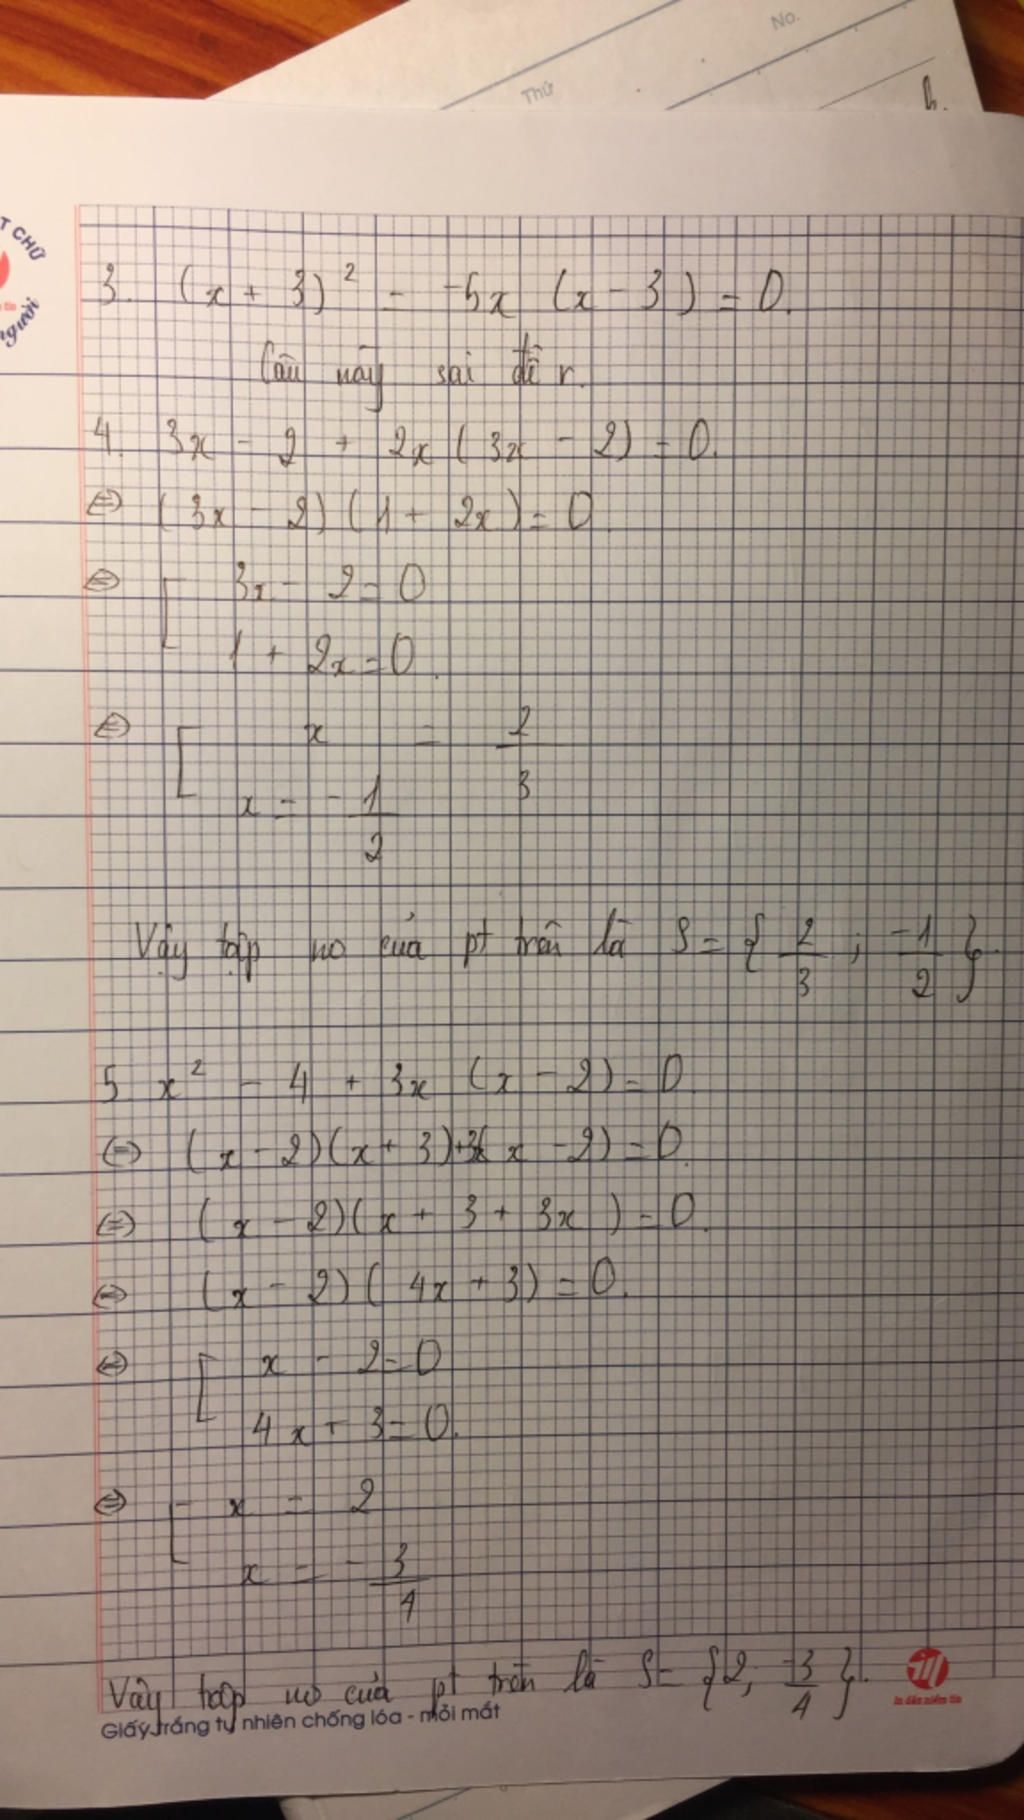 No.
Thứ
T CHỮ
người
3. (x + 3)² = -5x (x - 3) = 0.
Câu này sai đề r.
4. 3x - 2 + 2x (3x - 2) = 0.
⇔ (3x - 2)(1 + 2x) = 0.
⇔ [ 3x - 2 = 0
1 + 2x = 0.
⇔ [ x = 2/3
x = -1/2
Vậy tập no của pt trên là S = { 2/3 ; -1/2 }.
5. x² - 4 + 3x (x - 2) = 0.
⇔ (x - 2)(x + 3) + 3x(x - 2) = 0.
⇔ (x - 2)(x + 3 + 3x) = 0.
⇔ (x - 2)(4x + 3) = 0.
⇔ [ x - 2 = 0
4x + 3 = 0.
⇔ [ x = 2
x = -3/4
Vậy tập no của pt trên là S = {2; -3/4}.
Giấy trắng tự nhiên chống lóa - mỏi mắt